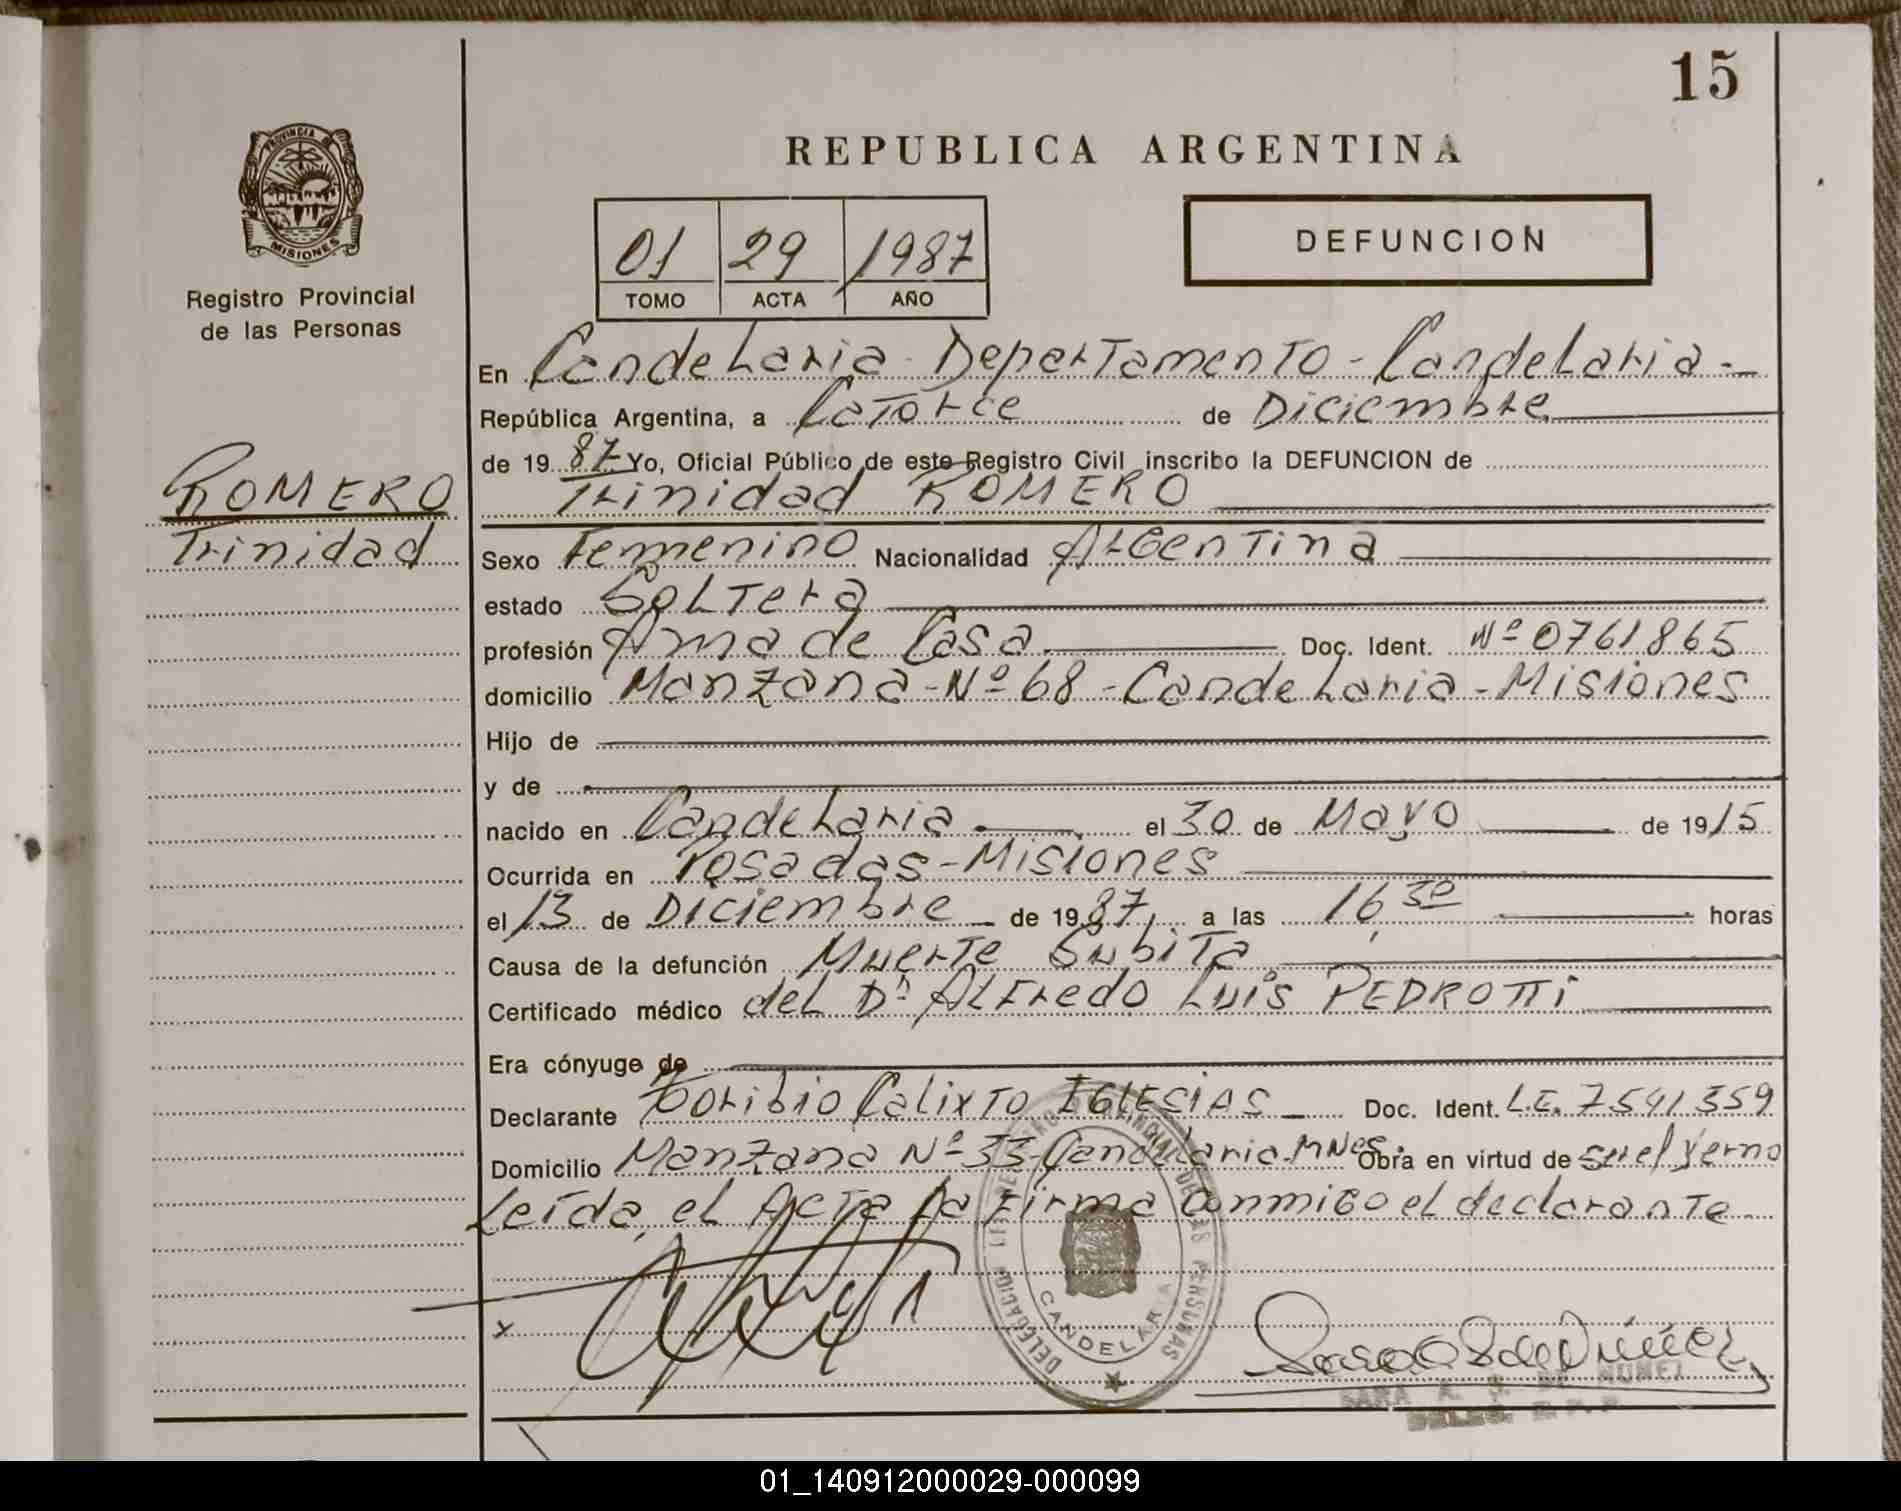 15
PROVINCIA DE
MISIONES
Registro Provincial
de las Personas
REPUBLICA ARGENTINA
01 29 1987
TOMO ACTA AÑO
DEFUNCION
En Candelaria Departamento - Candelaria -
República Argentina, a Catorce de Diciembre
de 19 87 Yo, Oficial Público de este Registro Civil inscribo la DEFUNCION de
Trinidad ROMERO
ROMERO
Trinidad
Sexo Femenino Nacionalidad Argentina
estado Soltera
profesión Ama de Casa Doc. Ident. Nº 0761865
domicilio Manzana - Nº 68 - Candelaria - Misiones
Hijo de
y de
nacido en Candelaria el 30 de Mayo de 1915
Ocurrida en Posadas - Misiones
el 13 de Diciembre de 1987, a las 16,30 horas
Causa de la defunción Muerte Subita
Certificado médico del Dr Alfredo Luis PEDROTTI
Era cónyuge de
Declarante Toribio Calixto IGLESIAS Doc. Ident. L.E. 7541359
Domicilio Manzana Nº 33 - Candelaria Mnes. Obra en virtud de ser el Yerno
Leída el Acta la Firma conmigo el declarante
x
DELEGACION
PROVINCIAL DE LAS PERSONAS
CANDELARIA
SARA A. S. DE NUÑEZ
01_140912000029-000099